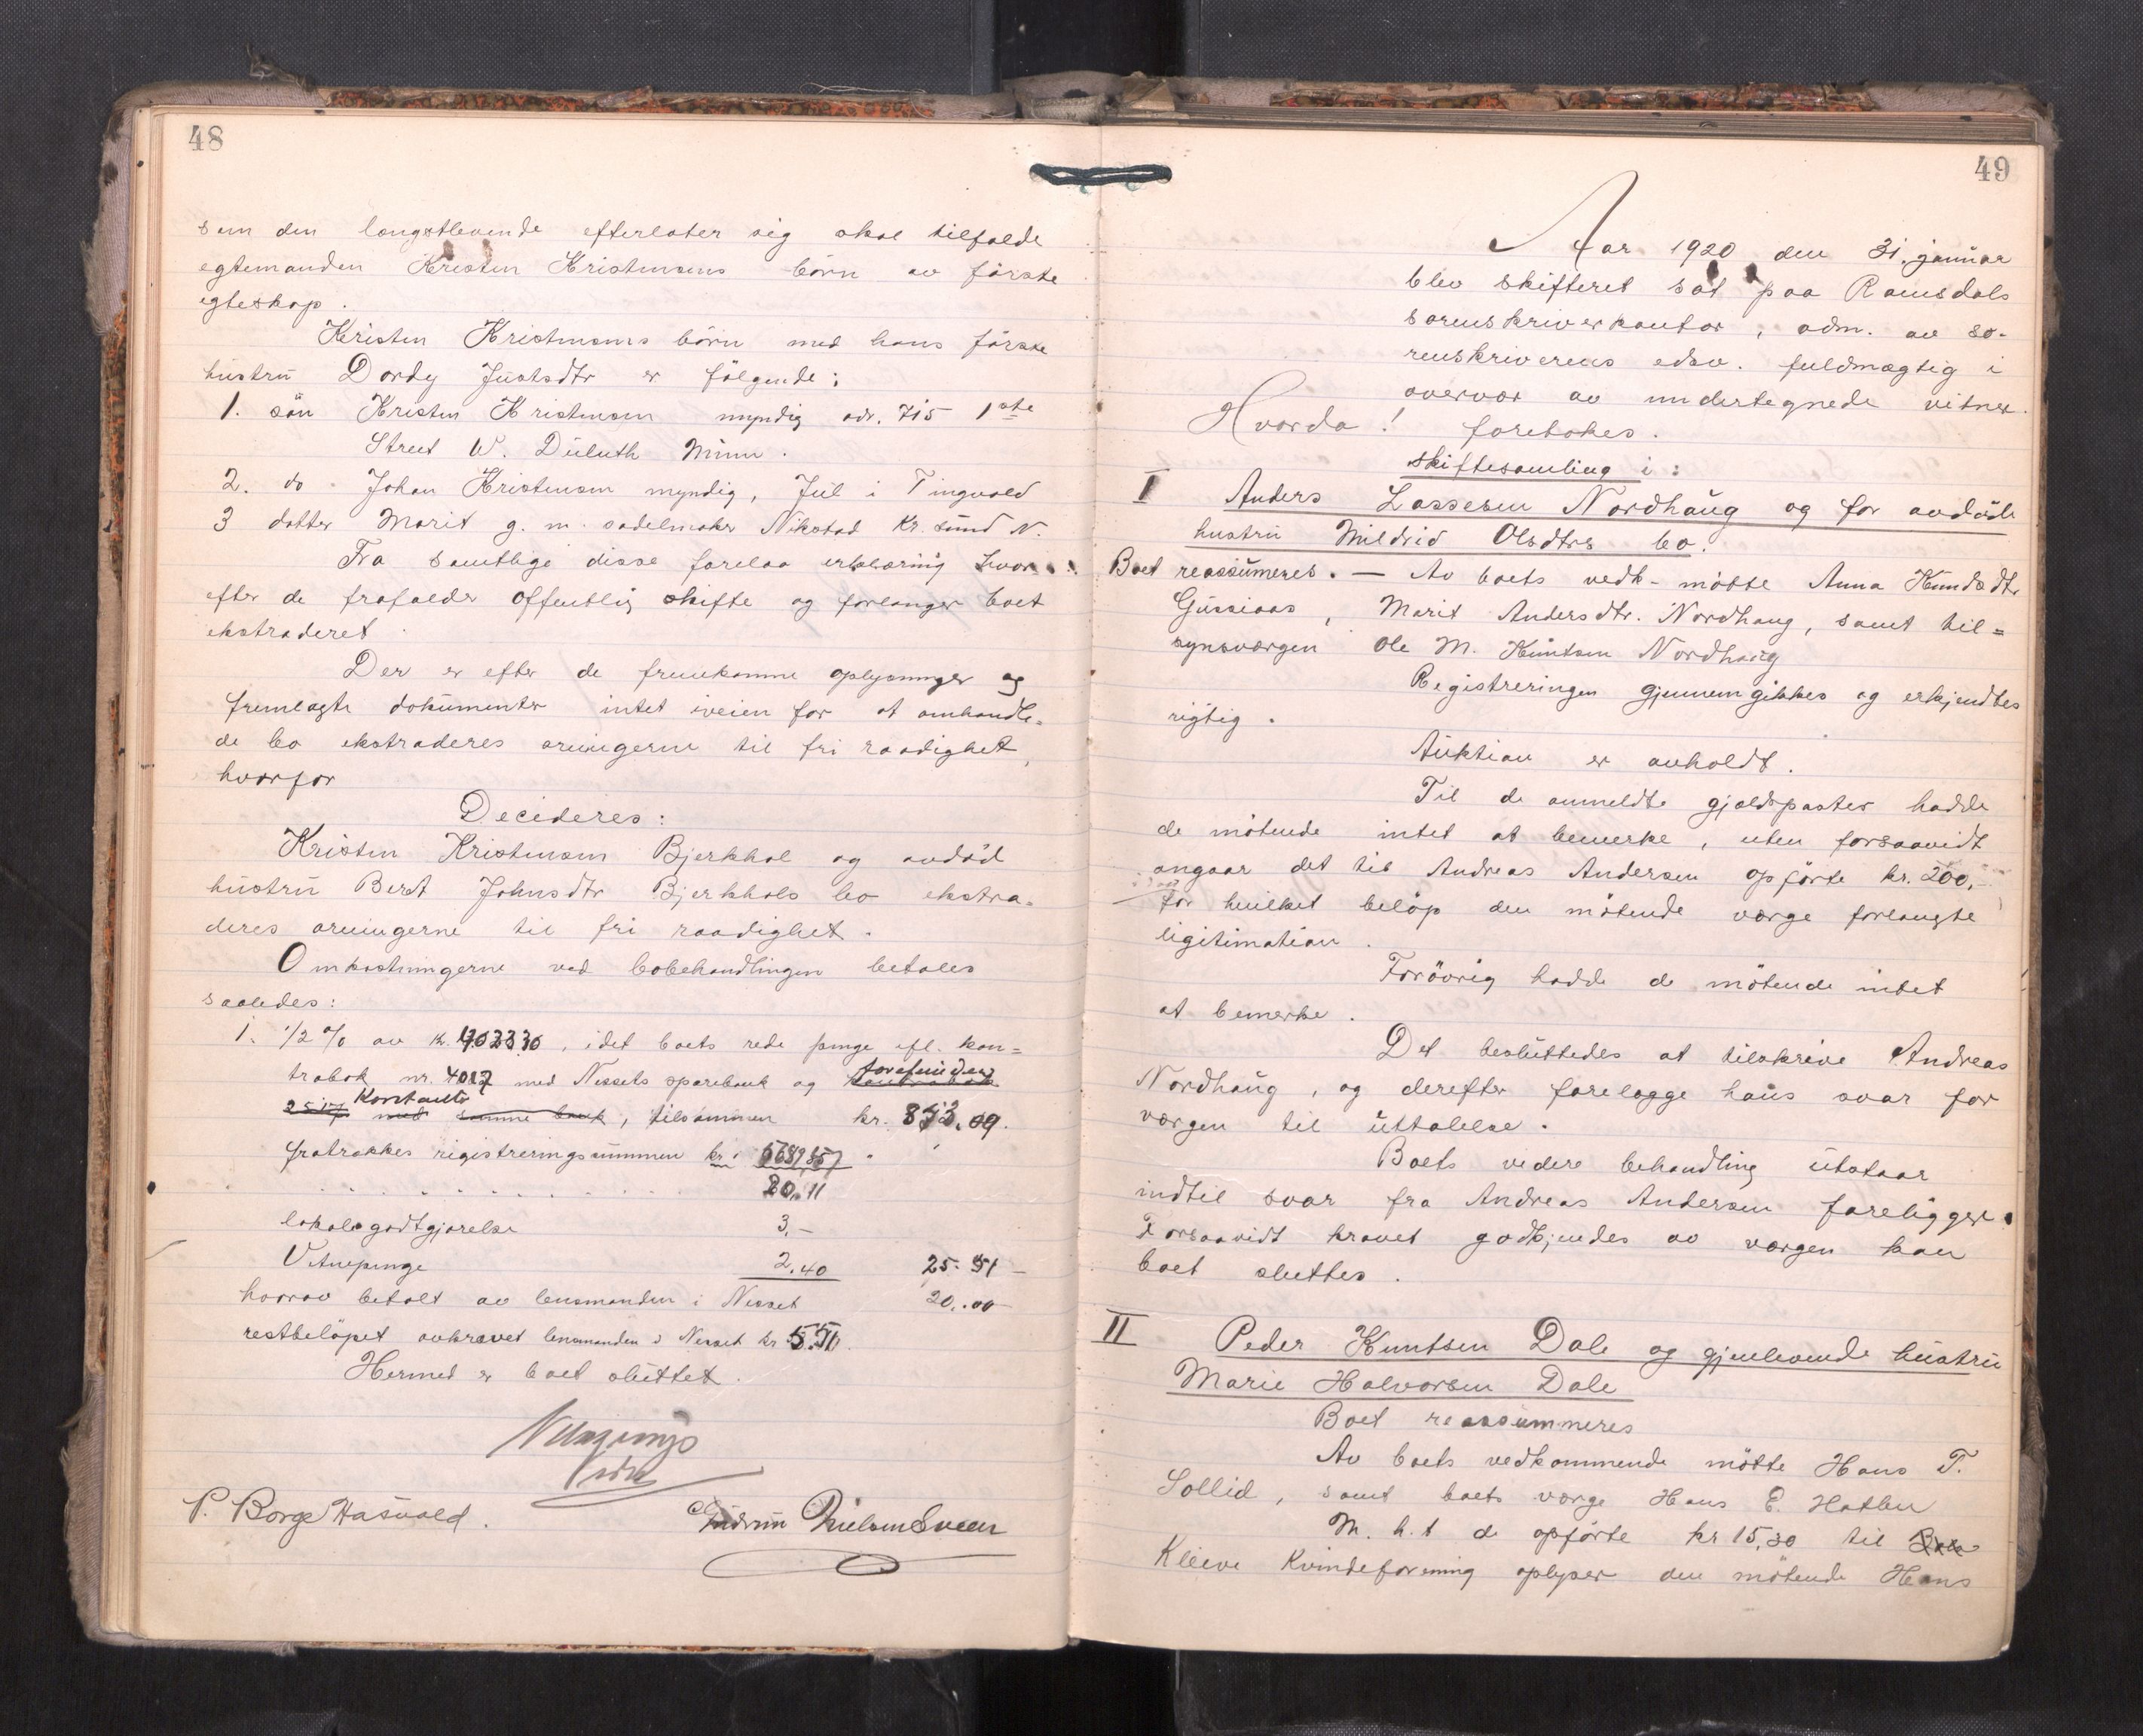 48
som den længstlevende efterlater sig skal tilfalde
egtemanden Kristen Kristensens børn av første
egteskap.
Kristen Kristensens børn med hans første
hustru Dordy Justsdtr er følgende:
1. søn Kristen Kristensen myndig adr. 715 1ste
Street W. Duluth Minn.
2. do Johan Kristensen myndig, Jul i Tingvold
3 datter Marit g. m. sadelmaker Nikstad Kr.sund N.
Fra samtlige disse forelaa erklæring hvor-
efter de frafalder offentlig skifte og forlanger boet
ekstraderet.
Der er efter de fremkomne oplysninger og
fremlagte dokumenter intet iveien for at omhandle-
de bo ekstraderes arvingerne til fri raadighet,
hvorfor
Decideres:
Kristen Kristensen Bjerkhol og avdød
hustru Berit Johnsdtr Bjerkhols bo ekstra-
deres arvingerne til fri raadighet.
Omkostningerne ved bobehandlingen betales
saaledes:
1. 1/2 % av kr. , idet boets rede penge efl. kon-
trabok nr. 4017 med Nessets sparebank og forefundne
kontante, tilsammen kr. 873.09.
fratrækkes registreringssummen kr.
20.11
lokalegodtgjørelse 3,-
Vitnepenge 2.40 25.51
hvorav betalt av lensmanden i Nesset 20.00
restbeløpet avkrævet lensmanden i Nesset kr 5.51.
Hermed er boet sluttet.
P. Borge Hasvold.
Gudrun Nielsen Sveen
49
Aar 1920 den 31. januar
blev skifteret sat paa Romsdals
sorenskriverkontor, adm. av so-
renskriverens edsv. fuldmægtig i
overvær av undertegnede vitner.
Hvorda! foretokes.
skiftesamling i:
I Anders Lassesen Nordhaug og for avdøde
hustru Mildrid Olsdtrs bo.
Boet reassumeres. — Av boets vedk. møtte Anna Knudsdtr
Gussiaas, Marit Andersdtr. Nordhaug, samt til=
synsværgen Ole M. Knutsen Nordhaug
Registreringen gjennemgikkes og erkjendtes
rigtig.
Auktion er avholdt.
Til de anmeldte gjældsposter hadde
de møtende intet at bemerke, uten forsaavidt
angaar det til Andreas Andersen opførte kr. 200,-
for hvilket beløp den møtende værge forlangte
ligitimation.
Forøvrig hadde de møtende intet
at bemerke.
Det besluttedes at tilskrive Andreas
Nordhaug, og derefter forelægge hans svar for
værgen til uttalelse.
Boets videre behandling utstaar
indtil svar fra Andreas Andersen foreligger.
Forsaavidt kravet godkjendes av værgen kan
boet sluttes.
II Peder Knutsen Dale og gjenlevende hustru
Marie Halvorsen Dale
Boet reassummeres
Av boets vedkommende møtte Hans T.
Sollid, samt boets værge Hans E. Hatlen
M. h. t de opførte kr 15,30 til
Kleive Kvindeforening oplyser den møtende Hans